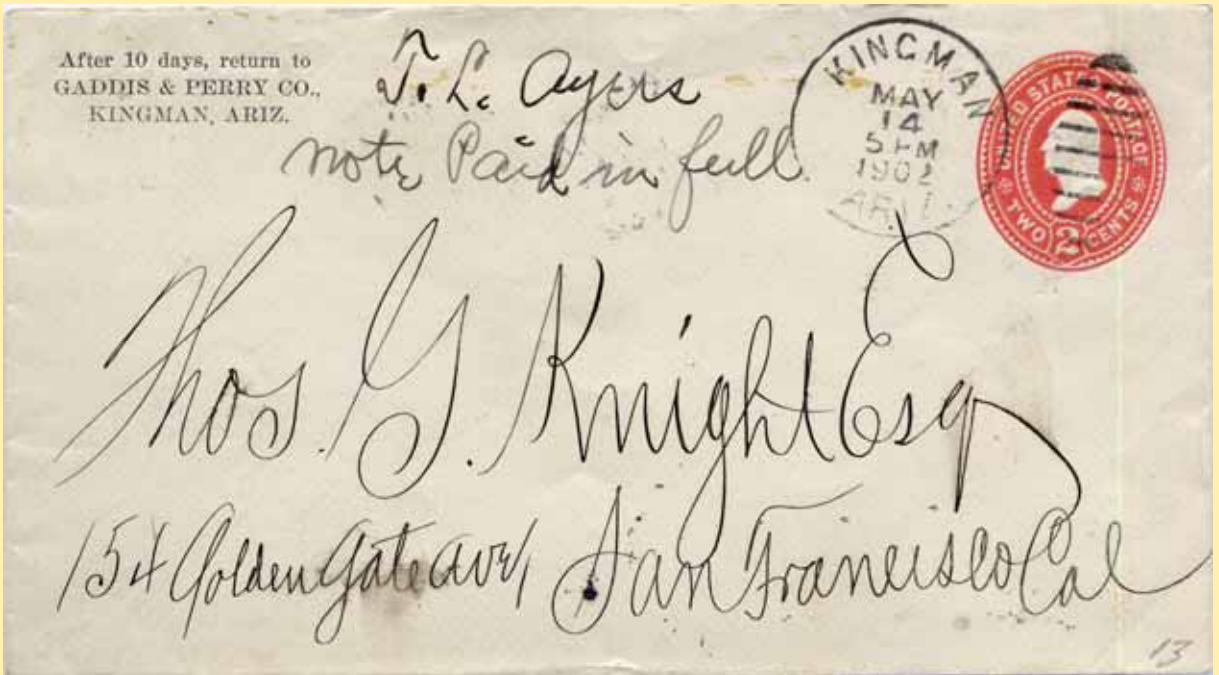 After 10 days, return to
GADDIS & PERRY CO.,
KINGMAN, ARIZ.
T. L. Ayers
note Paid in full
KINGMAN
MAY
14
5 PM
1902
ARIZ.
UNITED STATES POSTAGE
TWO 2 CENTS
Thos. G. Knight Esq
154 Golden Gate Ave
San Francisco Cal
13